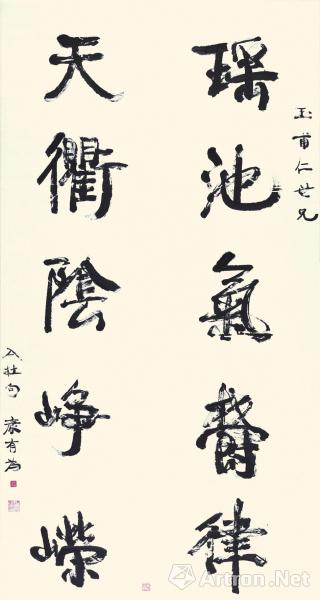 玉甫仁世兄
瑤池氣鬱律
天衢陰崢嶸
杜句 康有為
Artron.Net